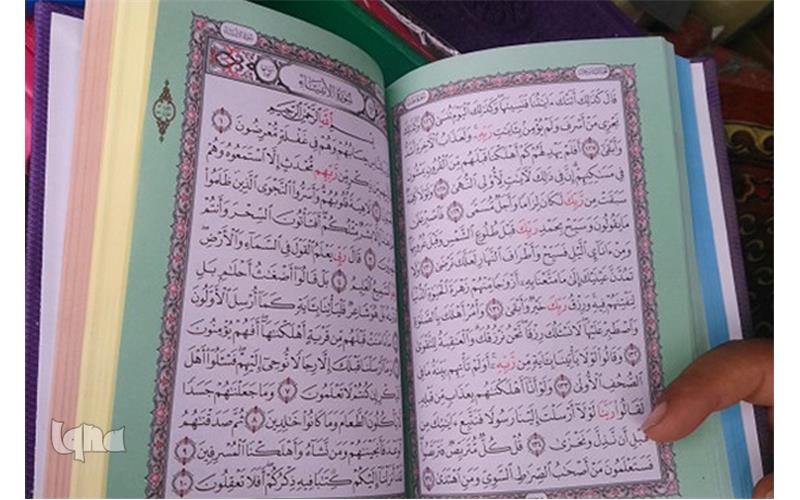 قال كذلك أتتك ءايتنا فنسيتها وكذلك اليوم تنسى ١٢٦ وكذلك
نجزي من أسرف ولم يؤمن بايت ربه ولعذاب الأخرة
وأبقى ١٢٧ أفلم يهد لهم كم أهلكنا قبلهم من القرون يمشون
في مسكنهم إن في ذلك لأيت لأولي النهى ١٢٨ ولولا كلمة
سبقت من ربك لكان لزاما وأجل مسمى ١٢٩ فاصبر على
ما يقولون وسبح بحمد ربك قبل طلوع الشمس وقبل غروبها
ومن ءاناي اليل فسبح وأطراف النهار لعلك ترضى ١٣٠ ولا
تمدن عينيك إلى ما متعنا به أزوجا منهم زهرة الحيوة الدنيا
لنفتنهم فيه ورزق ربك خير وأبقى ١٣١ وأمر أهلك بالصلوة
واصطبر عليها لا نسئلك رزقا نحن نرزقك والعقبة للتقوى
١٣٢ وقالوا لولا يأتينا باية من ربه أولم تأتهم بينة ما في
الصحف الأولى ١٣٣ ولو أنا أهلكنهم بعذاب من قبله
لقالوا ربنا لولا أرسلت إلينا رسولا فنتبع ءايتك من
قبل أن نذل ونخزى ١٣٤ قل كل متربص فتربصوا
فستعلمون من أصحب الصرط السوي ومن اهتدى ١٣٥
سورة الأنبياء
بسم الله الرحمن الرحيم
حسابهم وهم في غفلة معرضون ١
من ذكر من ربهم محدث إلا استمعوه وهم
لاهية قلوبهم وأسروا النجوى الذين ظلموا
بشر مثلكم أفتأتون السحر وأنتم
٣ قال ربي يعلم القول في السماء والأرض
السميع العليم ٤ بل قالوا أضغث أحلم بل
هو شاعر فليأتنا باية كما أرسل الأولون
ءامنت قبلهم من قرية أهلكنها أفهم يؤمنون
أرسلنا قبلك إلا رجالا نوحي إليهم فسئلوا أهل
إن كنتم لا تعلمون ٧ وما جعلنهم جسدا
يأكلون الطعام وما كانوا خلدين ٨ ثم صدقنهم
الوعد فأنجينهم ومن نشاء وأهلكنا المسرفين ٩
أنزلنا إليكم كتبا فيه ذكركم أفلا تعقلون ١٠
Iqna